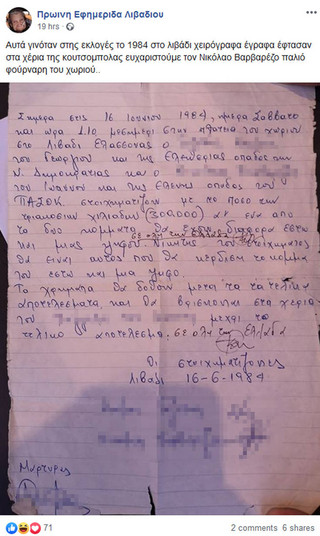 Πρωινη Εφημεριδα Λιβαδιου
19 hrs ·
Αυτά γινόταν στης εκλογές το 1984 στο λιβάδι χειρόγραφα έγραφα έφτασαν
στα χέρια της κουτσομπολας ευχαριστούμε τον Νικόλαο Βαρβαρέζο παλιό
φούρναρη του χωριού..
Σήμερα στις 16 Ιουνίου 1984, ημέρα Σάββατο
και ώρα 1.10 μεσημέρι στην πλατεία του χωριού
στο Λιβάδι Ελασσόνας ο
του Γεωργίου και της Ελευθερίας οπαδός της
Ν. Δημοκρατίας και ο
του Ιωάννου και της Ελένης οπαδός του
ΠΑΣΟΚ στοιχηματίζουν με το ποσό των
τριακοσίων χιλιάδων (300.000) ότι ένα από
τα δύο κόμματα θα έχουν διαφορά έστω
και μιας ψήφου σε όλη την Ελλάδα. Νικητής του στοιχήματος
θα είναι αυτός που θα κερδίσει το κόμμα
του έστω και μια ψήφο.
Τα χρήματα θα δοθούν μετά τα τελικά
αποτελέσματα και θα βρίσκονται στα χέρια
του μέχρι το
τελικό αποτέλεσμα. σε όλη την Ελλάδα
Οι στοιχηματίζοντες
Λιβάδι 16-6-1984
Μάρτυρες
71
2 comments 6 shares